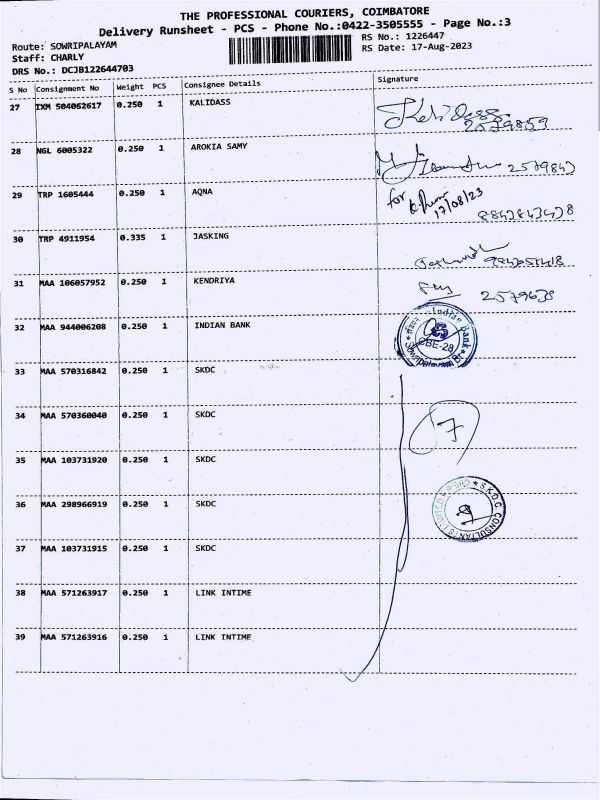 THE PROFESSIONAL COURIERS, COIMBATORE
Delivery Runsheet - PCS - Phone No.:0422-3505555 - Page No.:3
Route: SOWRIPALAYAM
RS No.: 1226447
Staff: CHARLY
RS Date: 17-Aug-2023
DRS No.: DCJB122644703
S No Consignment No Weight PCS Consignee Details Signature
27 IXM 504062617 0.250 1 KALIDASS
2579859
28 NGL 6005322 0.250 1 AROKIA SAMY
29 TRP 1605444 0.250 1 AQNA
for 17/08/23
30 TRP 4911954 0.335 1 JASKING
31 MAA 106057952 0.250 1 KENDRIYA
32 MAA 944006208 0.250 1 INDIAN BANK
Indian Bank
CBE-28
Sowripalayam Br
33 MAA 570316842 0.250 1 SKDC
34 MAA 570360040 0.250 1 SKDC
7
35 MAA 103731920 0.250 1 SKDC
36 MAA 298966919 0.250 1 SKDC
S.K.D.C. CONSULTANTS LIMITED
37 MAA 103731915 0.250 1 SKDC
38 MAA 571263917 0.250 1 LINK INTIME
39 MAA 571263916 0.250 1 LINK INTIME